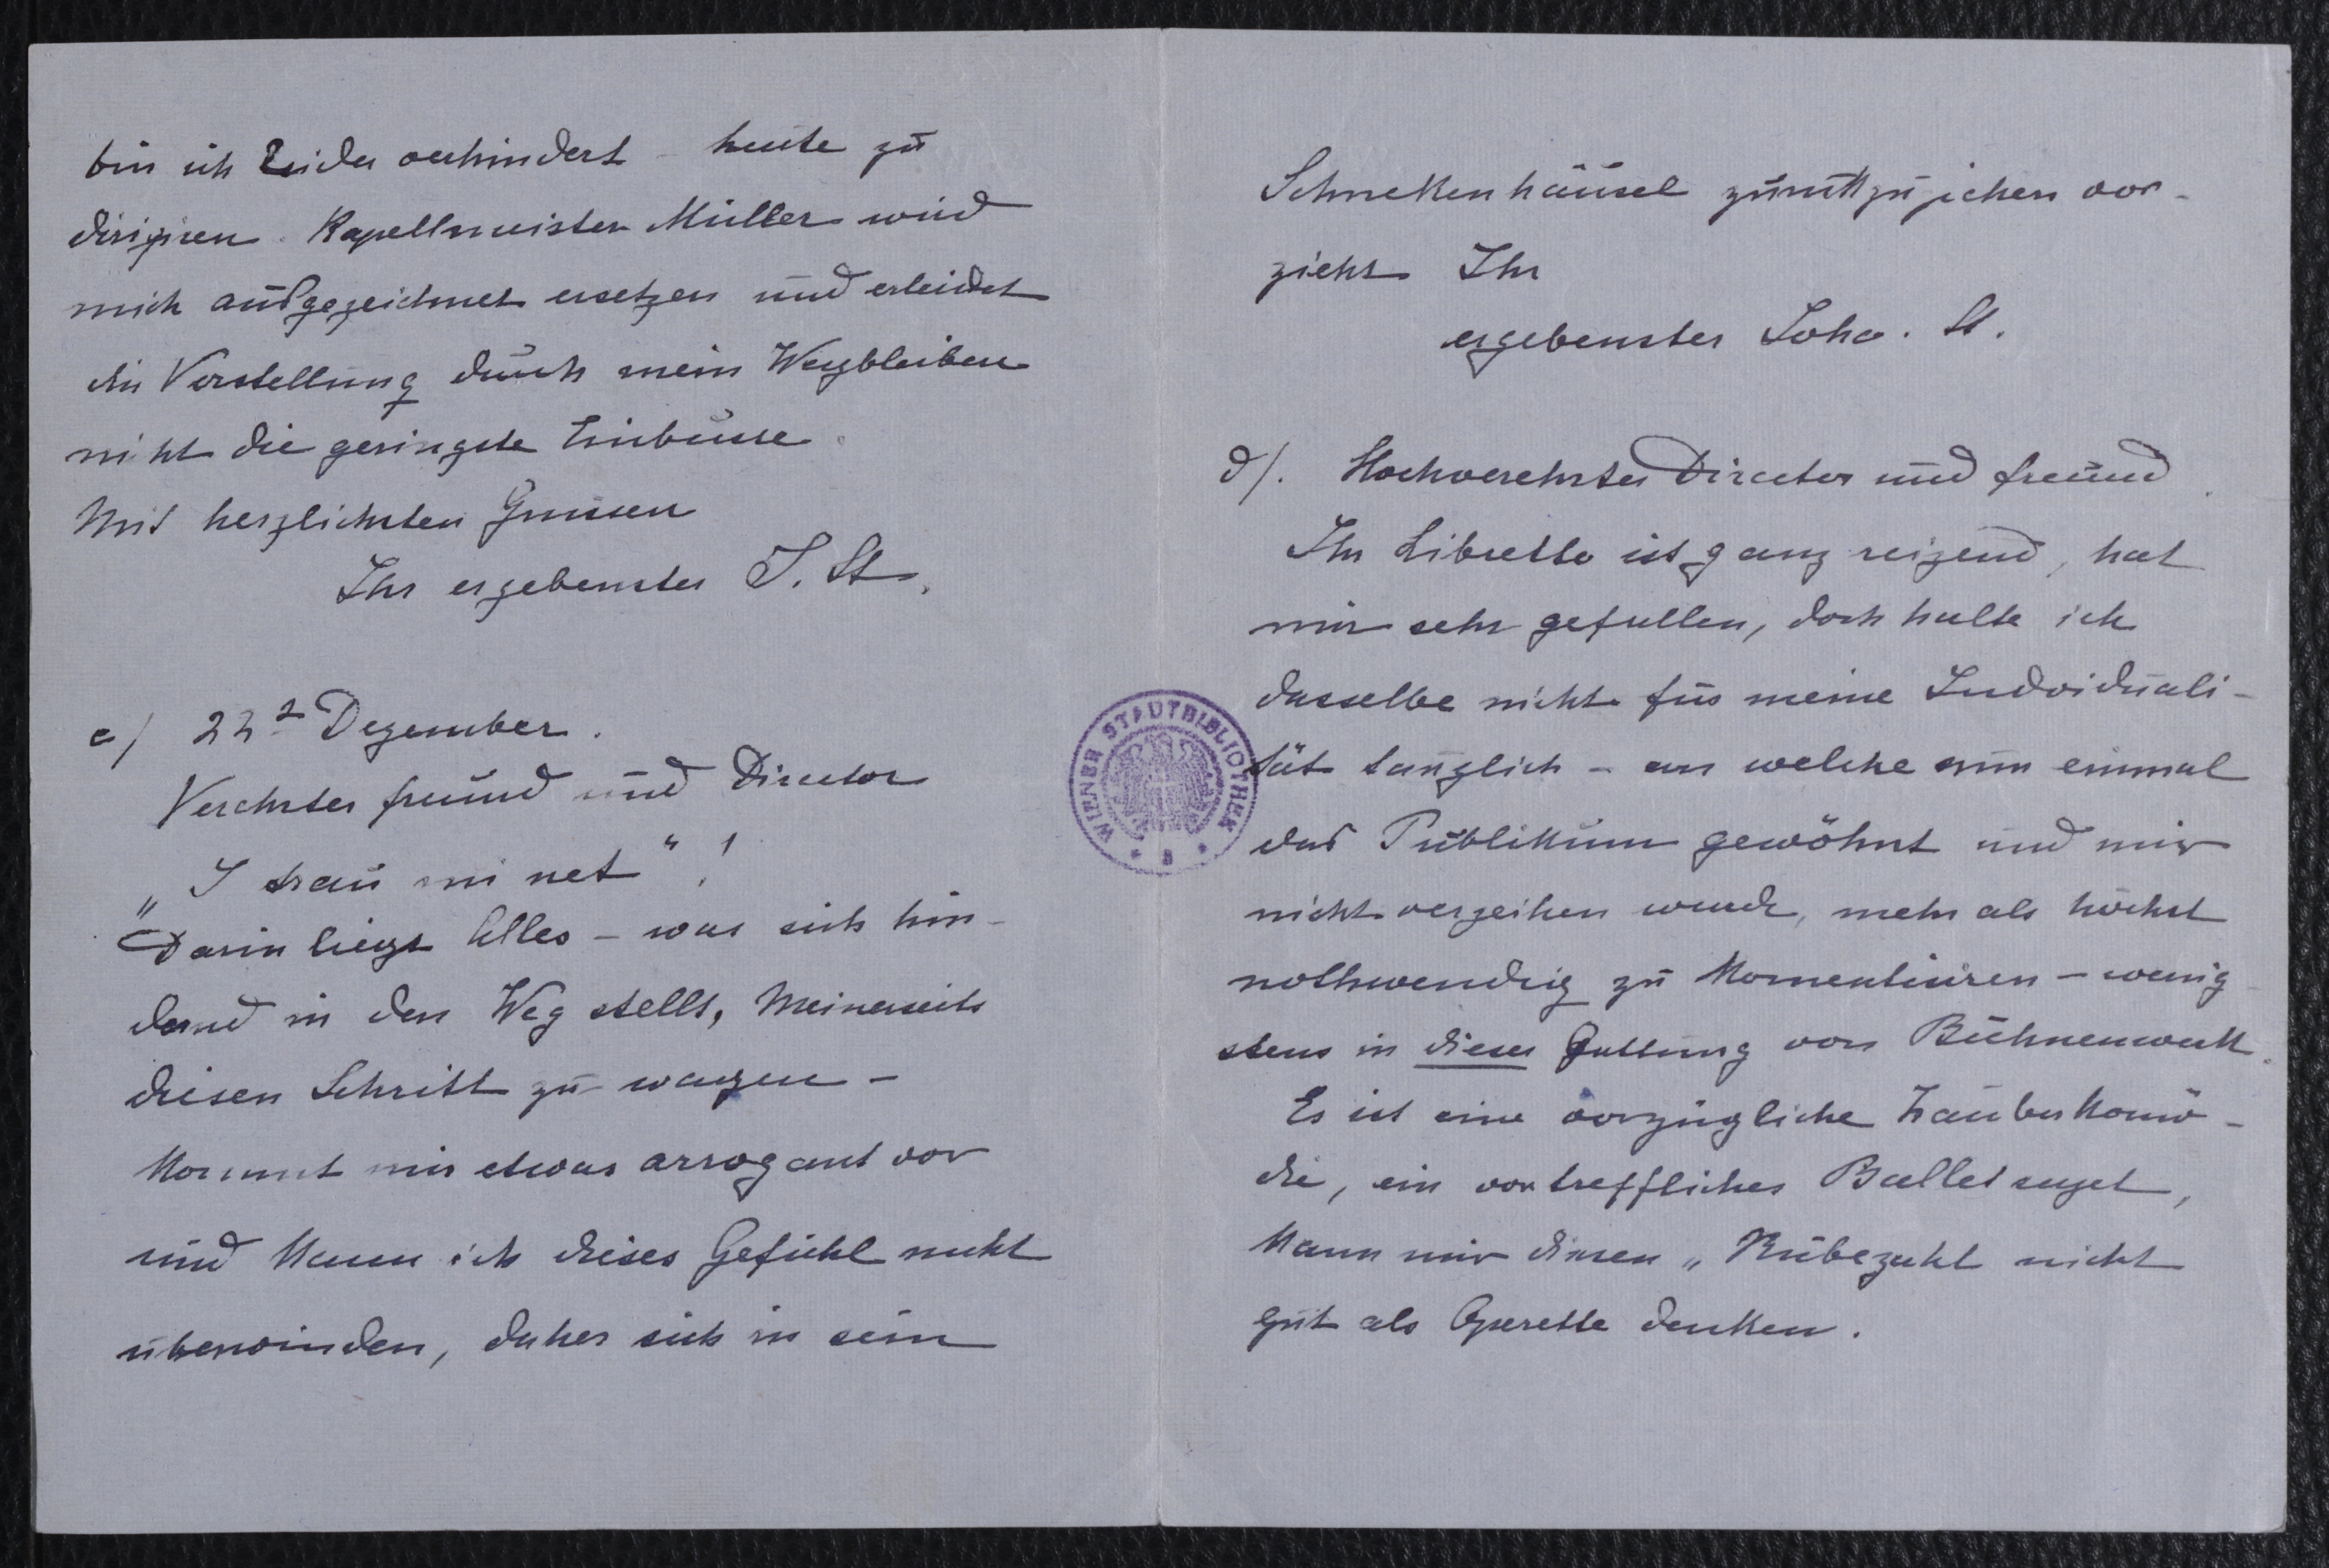 bin ich Leider verhindert - heute zu
dirigiren. Kapellmeister Müller wird
mich ausgezeichnet ersetzen und erleidet
die Vorstellung durch mein Wegbleiben
nicht die geringste Einbusse.
Mit herzlichsten Grüssen
Ihr ergebenster J. St.
c/ 22 Dezember.
Verehrter Freund und Director
„I trau mi net“!
Darin liegt Alles - was sich hin-
dernd in den Weg stellt, Meinerseits
diesen Schritt zu wagen -
Kommt mir etwas arrogant vor
und Kann ich dieses Gefühl nicht
überwinden, daher sich in sein
Schnekenhäusel zurükzuziehen vor-
zieht Ihr
ergebenster Joha. St.
d/. Hochverehrter Director und Freund.
Ihr Libretto ist ganz reizend, hat
mir sehr gefallen, doch halte ich
dasselbe nicht für meine Individuali-
tät tauglich - an welche nun einmal
das Publikum gewöhnt und mir
nicht verzeihen wurde, mehr als höchst
nothwendig zu Komentiuren - wenig
stens in dieser Gattung von Bühnenwerk.
Es ist eine vorzügliche Zauberkomö-
die, ein vortreffliches Balletsujet,
Kann mir diesen „Rübezahl nicht
gut als Operette denken.
WIENER STADTBIBLIOTHEK